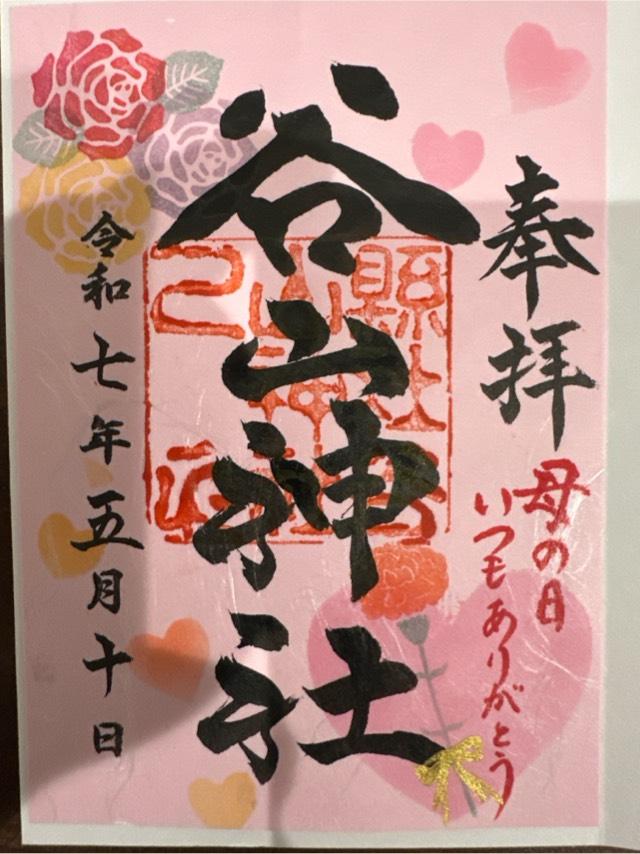 奉拝
母の日
いつもありがとう
谷山神社
令和七年五月十日